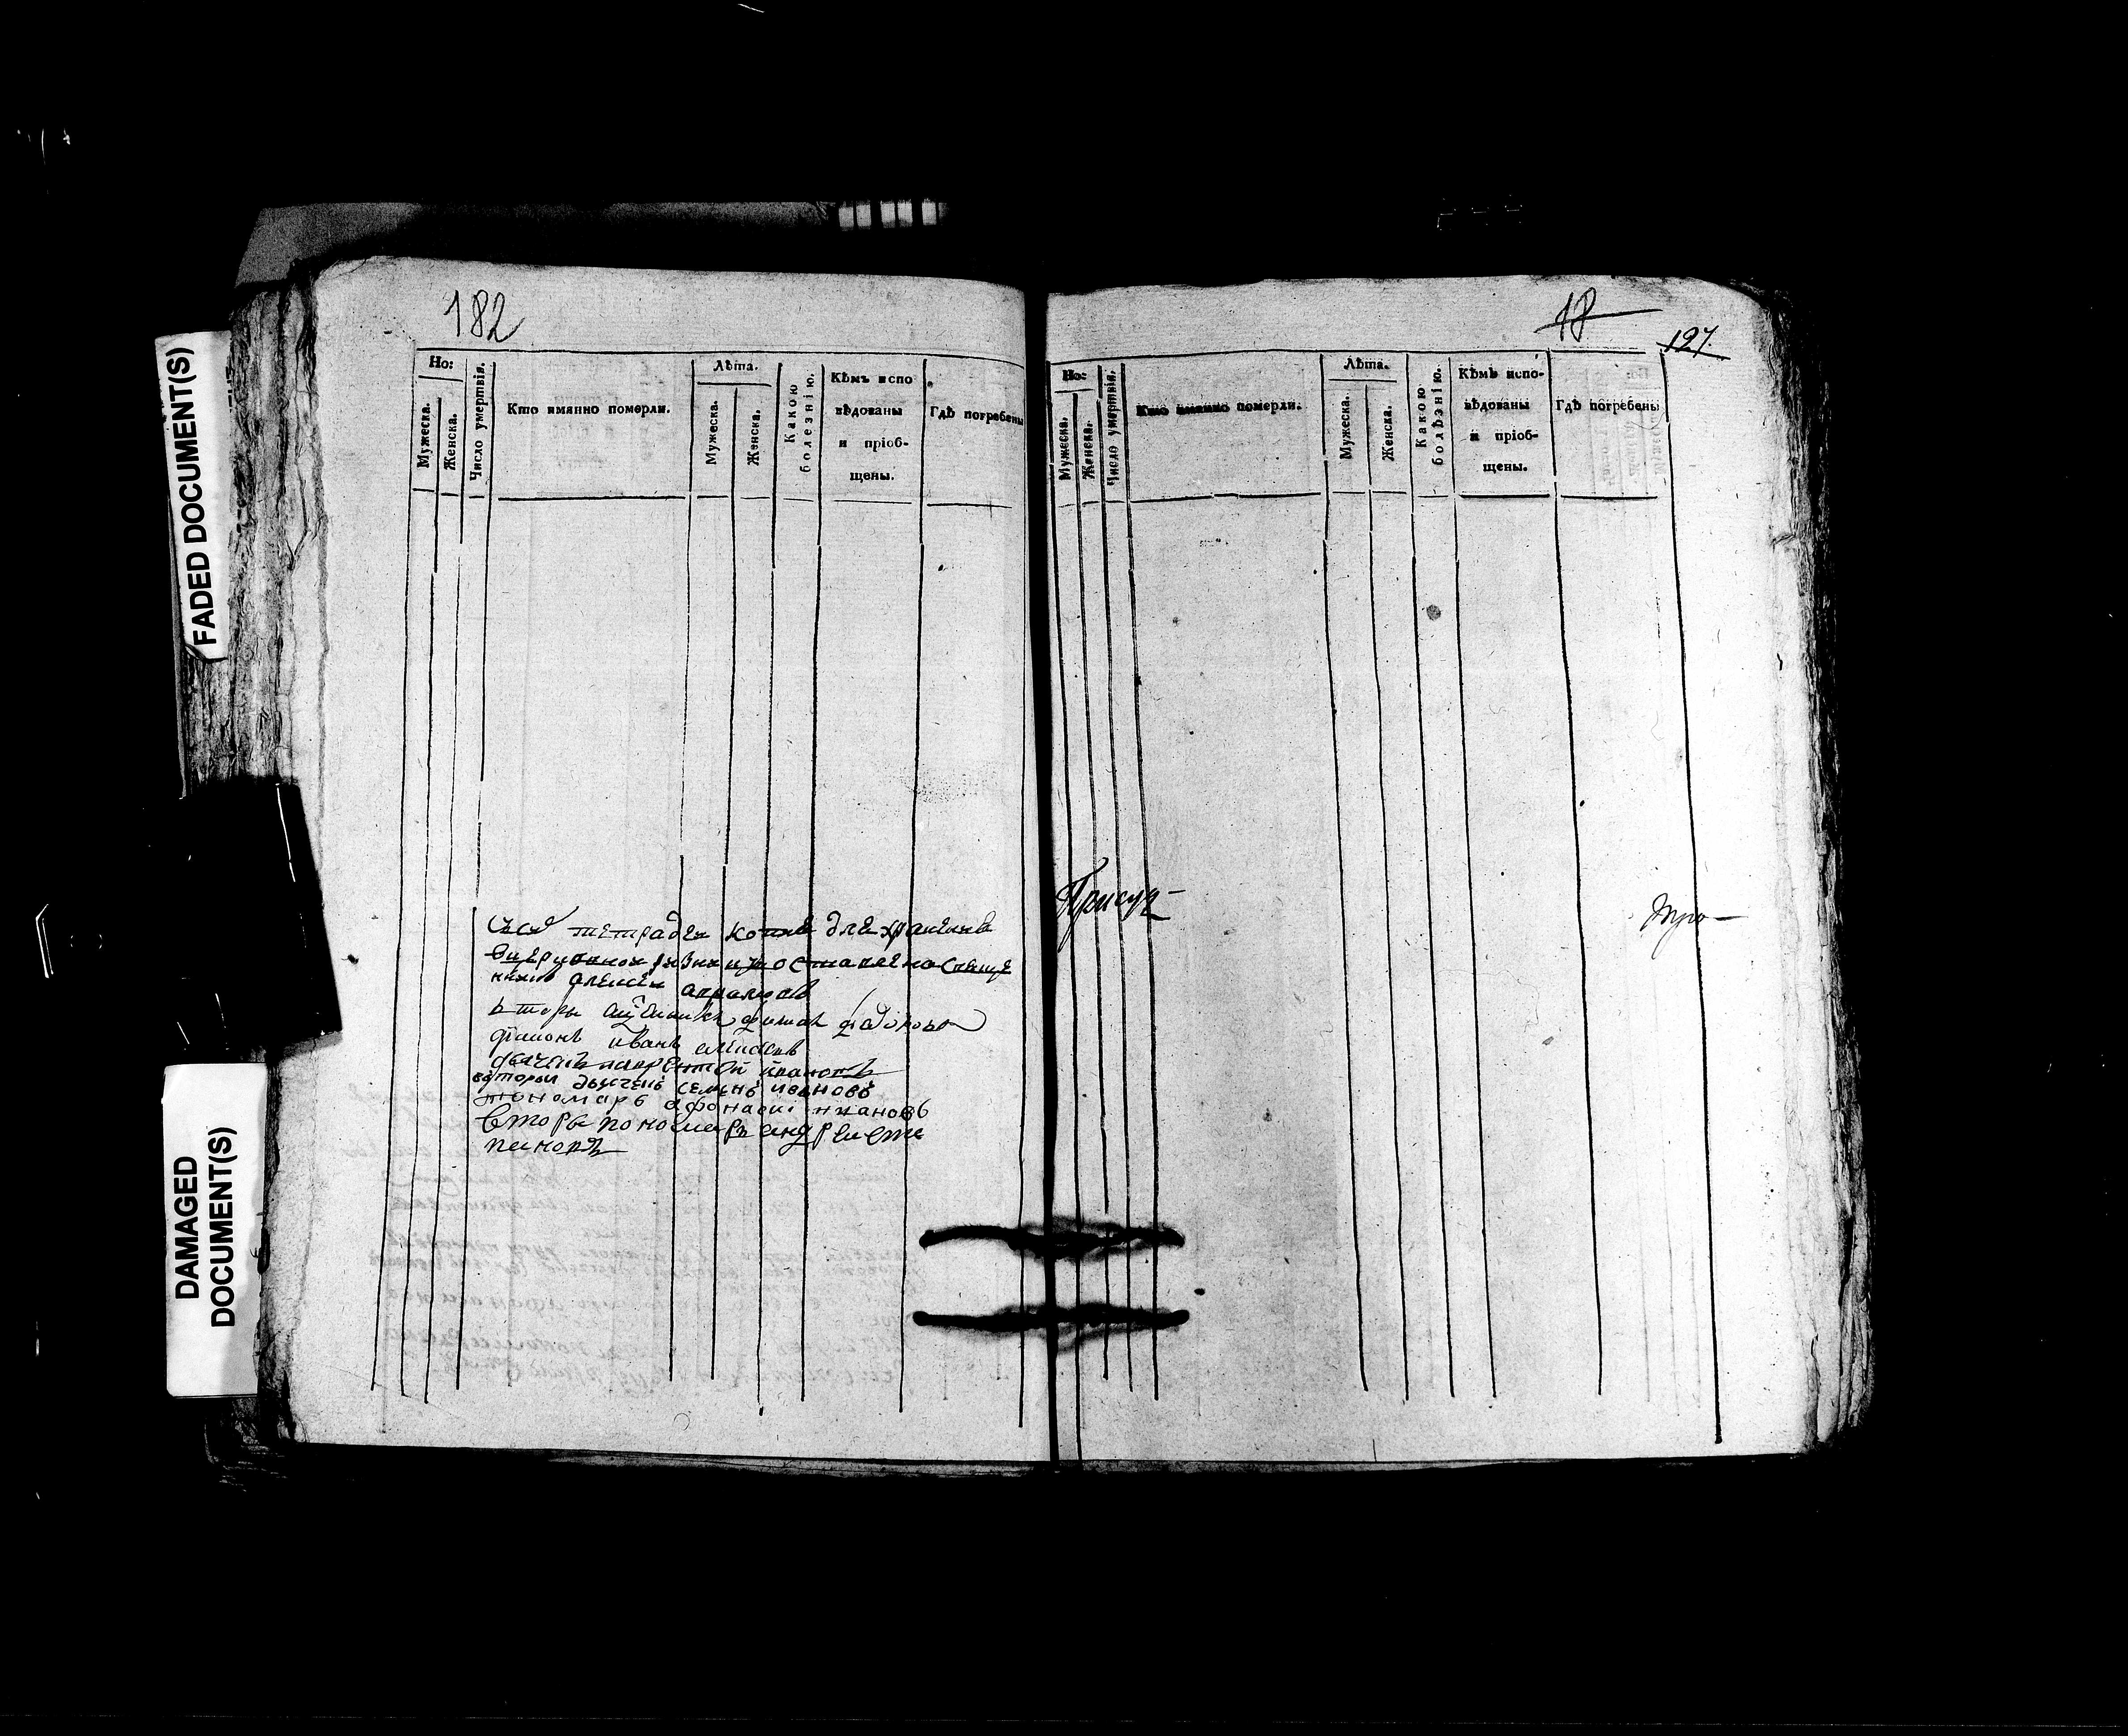 FADED DOCUMENT(S)
DAMAGED
DOCUMENT(S)
182
Но:
Мужеска.
Женска.
Число умертвія.
Кто имянно померли.
Лѣта.
Мужеска.
Женска.
Какою
болезнію.
Кѣмъ испо
вѣдованы
и пріоб-
щены.
Гдѣ погребены
тетрадеи для
оставлено свяще
алексеи
вторы
иванъ
дьячекъ ивановъ
вторыи дьячекъ семенъ ивановъ
пономарь афонасеи ивановъ
вторы пономаръ андреи сте
пановъ
18
127.
Но:
Мужеска.
Женска.
Число умертвія.
Кто имянно померли.
Лѣта.
Мужеска.
Женска.
Какою
болѣзнію.
Кѣмъ испо-
вѣдованы
и пріоб-
щены.
Гдѣ погребены